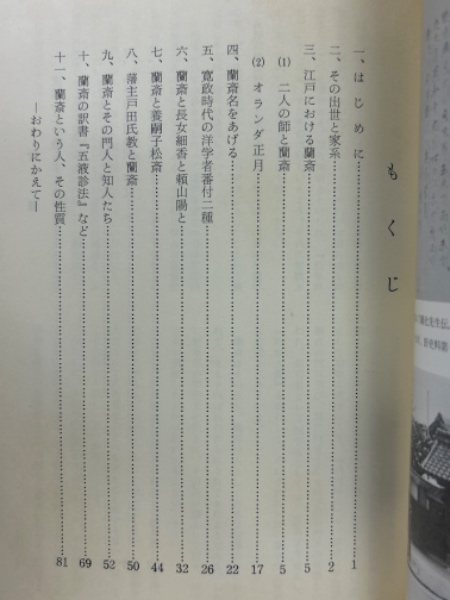 もくじ
一、はじめに 1
二、その出世と家系 2
三、江戸における蘭斎 5
(1) 二人の師と蘭斎 5
(2) オランダ正月 17
四、蘭斎名をあげる 22
五、寛政時代の洋学者番付二種 26
六、蘭斎と長女細香と頼山陽と 32
七、蘭斎と養嗣子松斎 44
八、藩主戸田氏教と蘭斎 50
九、蘭斎とその門人と知人たち 52
十、蘭斎の訳書『五液診法』など 69
十一、蘭斎という人、その性質 81
―おわりにかえて―